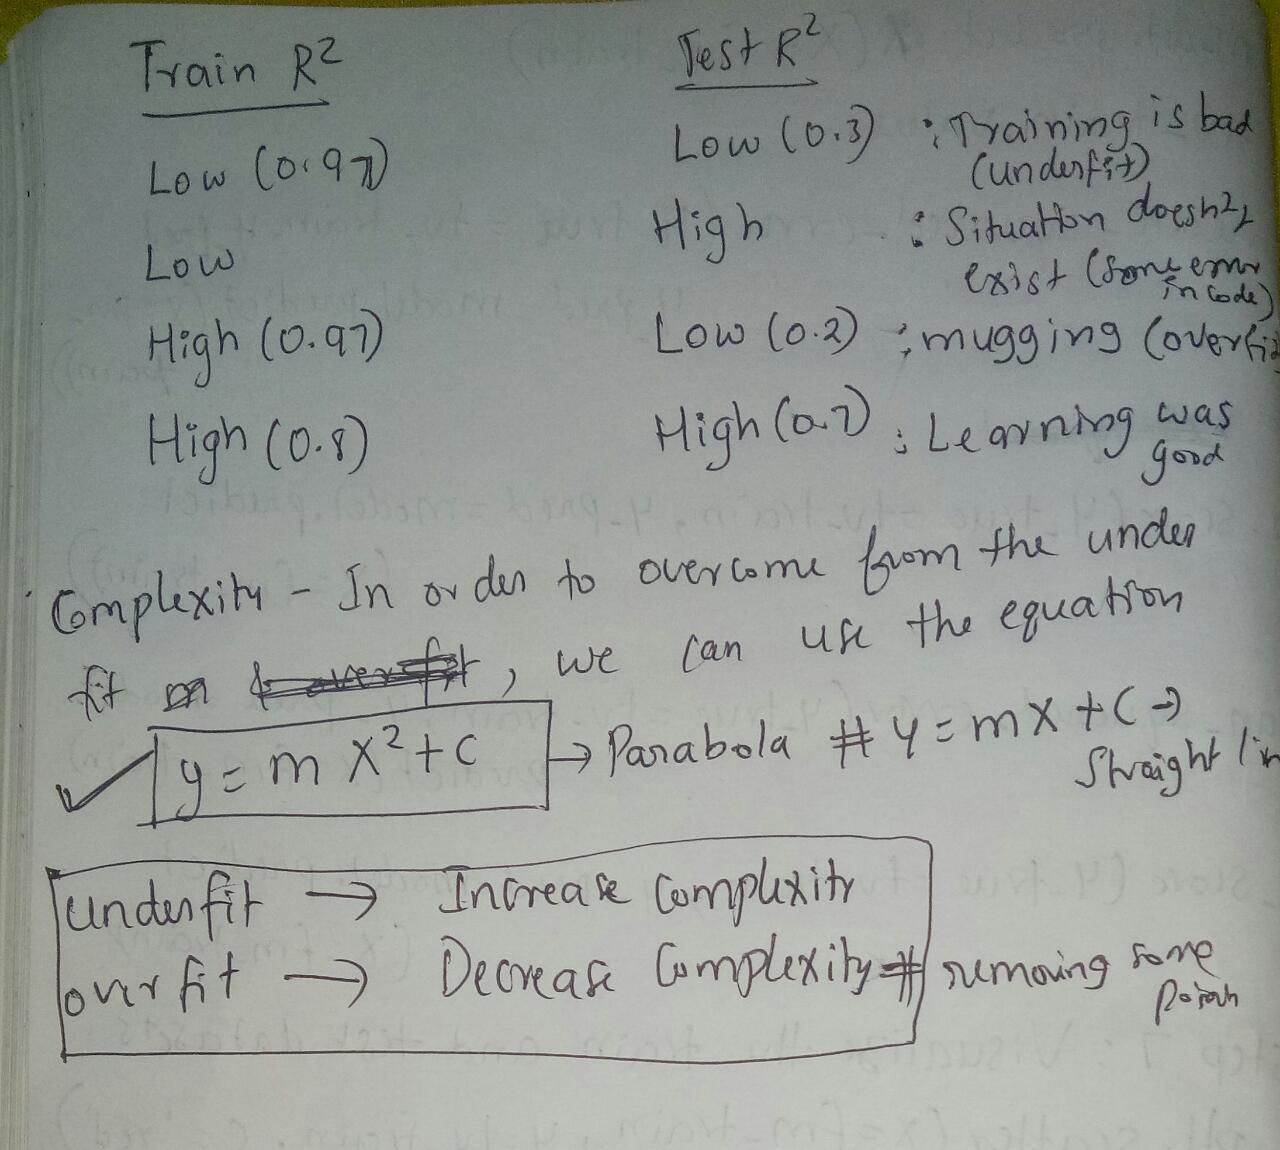 Train R² Test R²
Low (0.97) Low (0.3) : Training is bad
(underfit)
Low High : Situation doesn't
exist (some error
in code)
High (0.97) Low (0.2) : mugging (overfit
High (0.8) High (0.7) : Learning was
good
Complexity - In order to overcome from the under
fit , we can use the equation
y = m x² + c → Parabola # y = mx + c →
Straight lin
underfit → Increase Complexity
overfit → Decrease Complexity # removing some